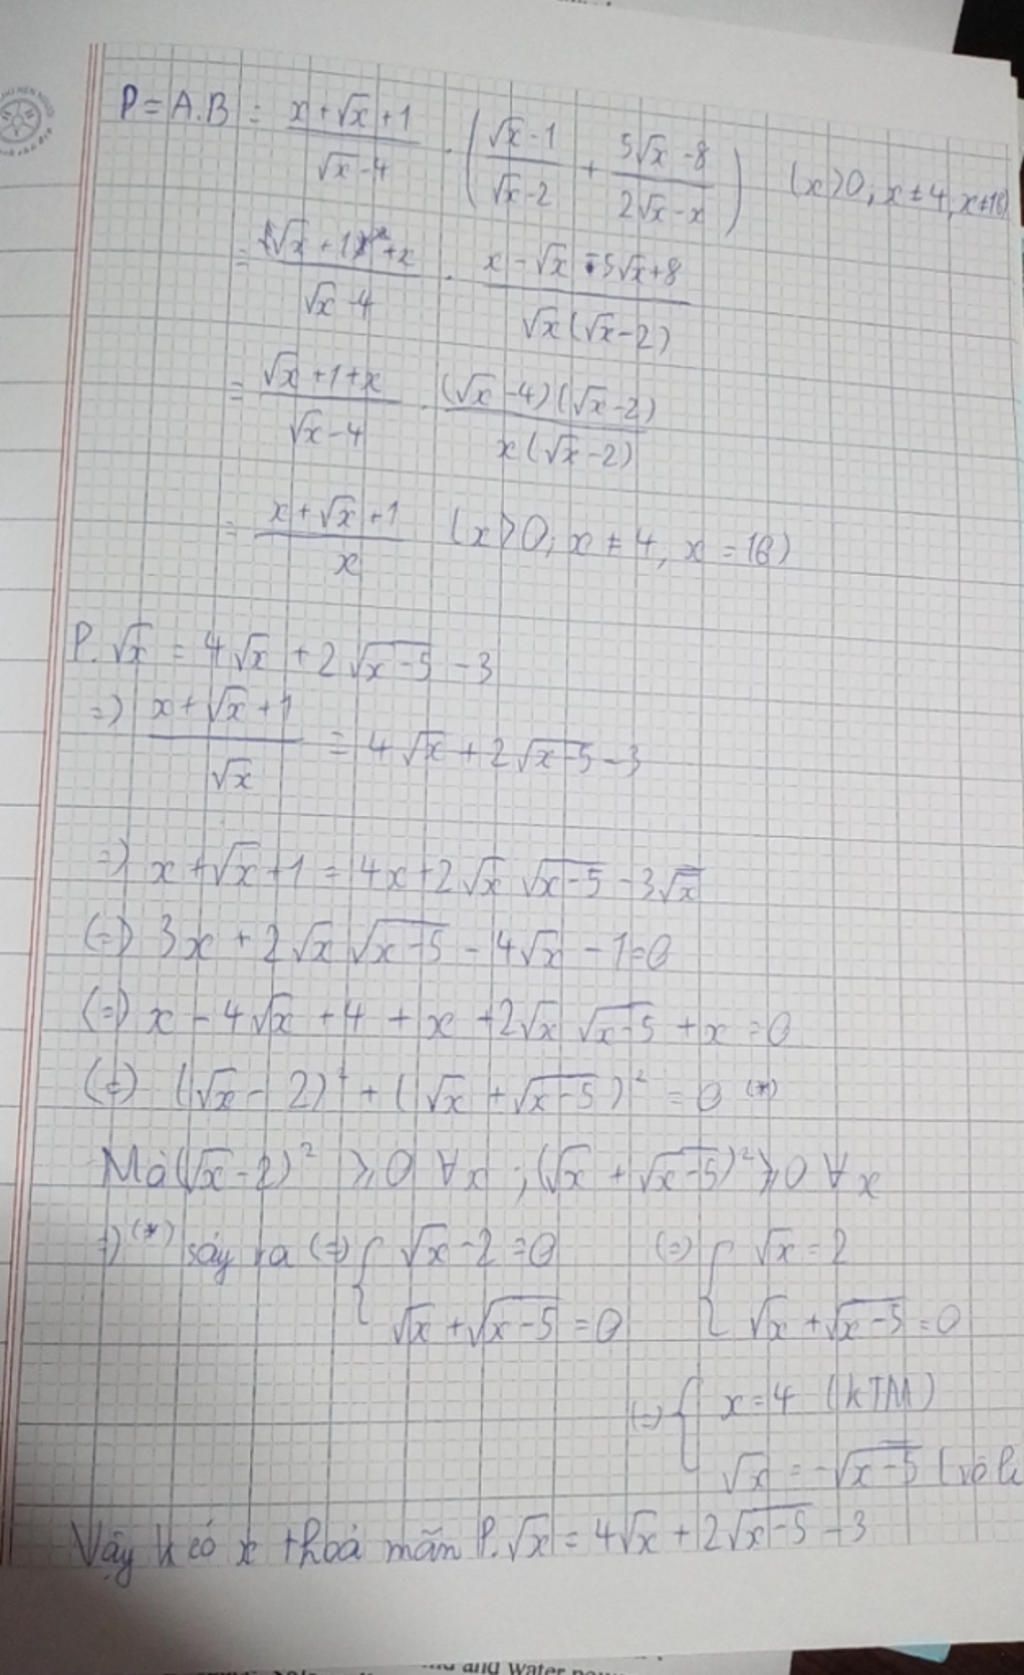 P = A.B = \frac{x+\sqrt{x}+1}{\sqrt{x}-4} . \left( \frac{\sqrt{x}-1}{\sqrt{x}-2} + \frac{5\sqrt{x}-8}{2\sqrt{x}-x} \right) (x>0; x≠4, x≠16)
= \frac{\sqrt{x}+1+x}{\sqrt{x}-4} . \frac{x-\sqrt{x}-5\sqrt{x}+8}{\sqrt{x}(\sqrt{x}-2)}
= \frac{\sqrt{x}+1+x}{\sqrt{x}-4} . \frac{(\sqrt{x}-4)(\sqrt{x}-2)}{x(\sqrt{x}-2)}
= \frac{x+\sqrt{x}+1}{x} (x>0; x≠4, x=16)
P.\sqrt{x} = 4\sqrt{x} + 2\sqrt{x-5} - 3
=) \frac{x+\sqrt{x}+1}{\sqrt{x}} = 4\sqrt{x} + 2\sqrt{x-5} - 3
=) x+\sqrt{x}+1 = 4x+2\sqrt{x}\sqrt{x-5}-3\sqrt{x}
(=) 3x + 2\sqrt{x}\sqrt{x-5} - 4\sqrt{x} - 1=0
(=) x - 4\sqrt{x} + 4 + x + 2\sqrt{x}\sqrt{x-5} + x = 0
(=) (\sqrt{x} - 2)^2 + (\sqrt{x} + \sqrt{x-5})^2 = 0 (*)
Mà (\sqrt{x}-2)^2 ≥ 0 ∀x ; (\sqrt{x} + \sqrt{x-5})^2 ≥ 0 ∀x
=) (*) sảy ra (=) { \sqrt{x}-2=0 (=) { \sqrt{x} = 2
\sqrt{x}+\sqrt{x-5} = 0 \sqrt{x}+\sqrt{x-5}=0
(=) { x=4 (kTM)
\sqrt{x} = -\sqrt{x-5} (vô lí
Vậy k có x thoả mãn P.\sqrt{x} = 4\sqrt{x} + 2\sqrt{x-5} - 3
and water